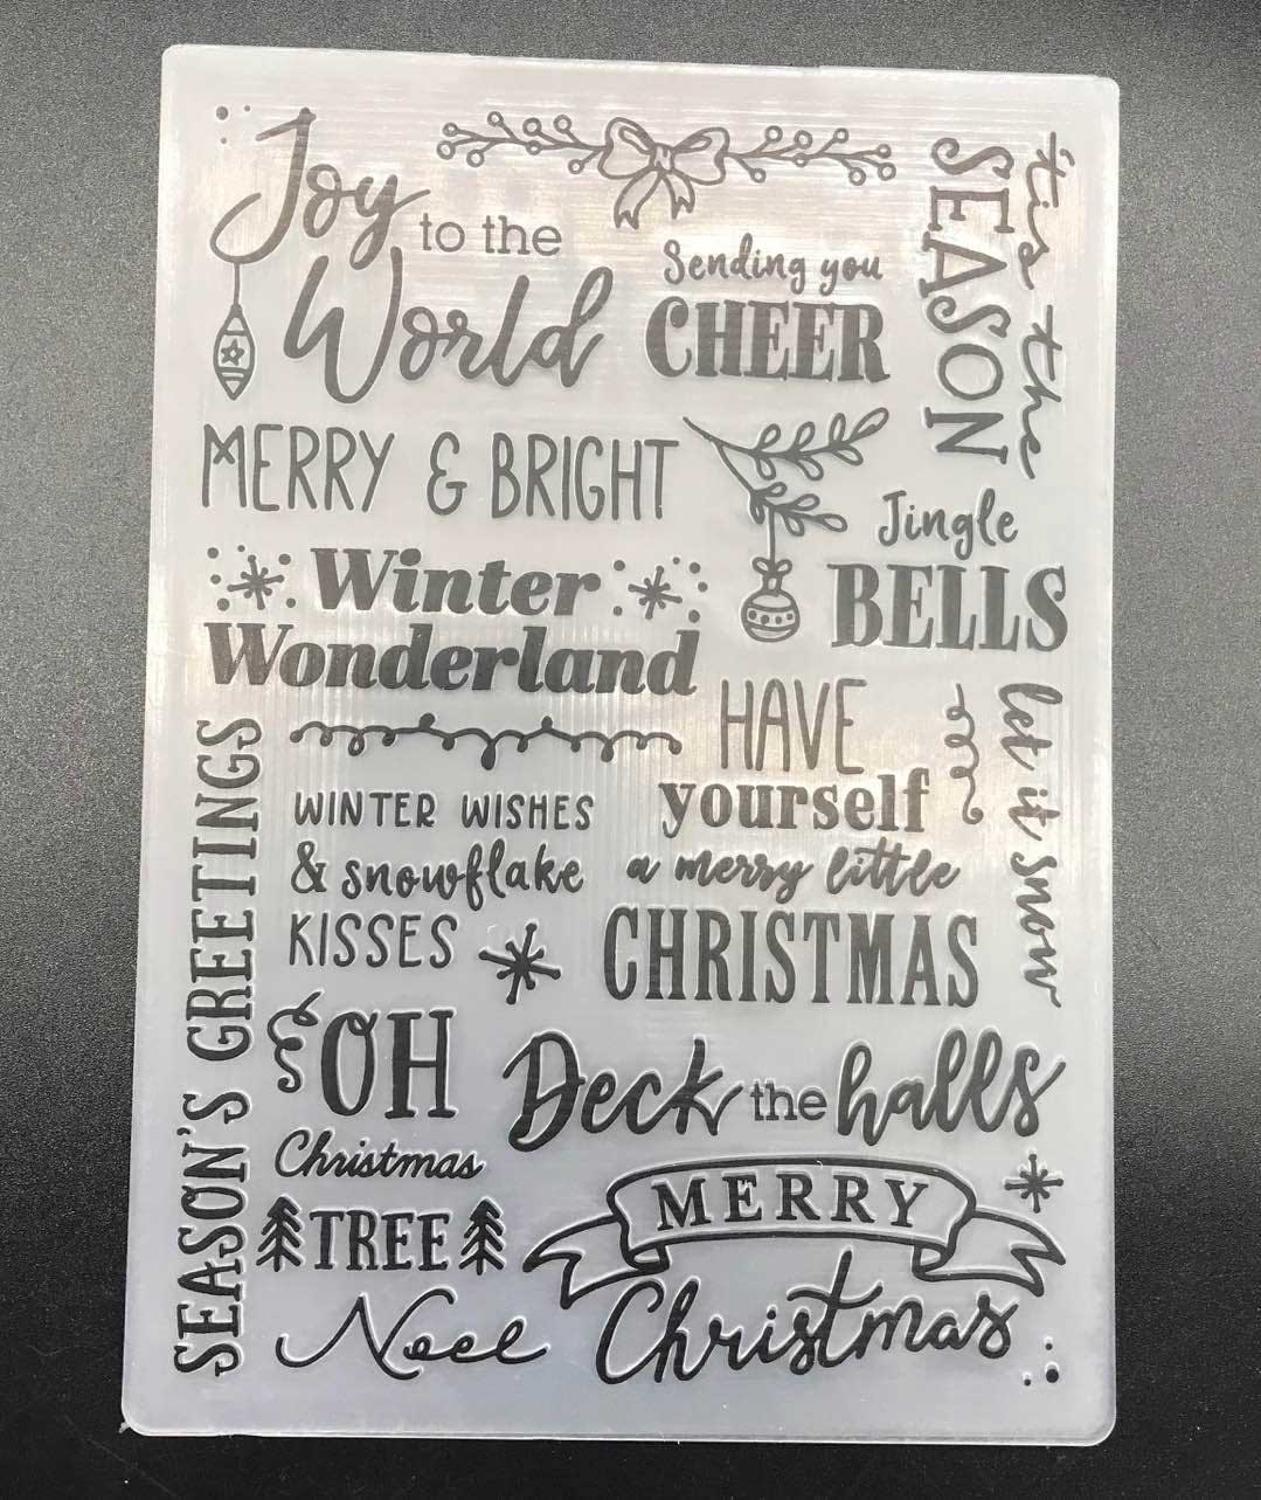 Joy
to the
World
Sending you
CHEER
'tis the
SEASON
MERRY & BRIGHT
Jingle
BELLS
Winter
Wonderland
HAVE
yourself
a merry little
CHRISTMAS
let it snow
WINTER WISHES
& snowflake
KISSES
SEASON'S GREETINGS
OH
Christmas
TREE
Deck the halls
MERRY
Christmas
Noel